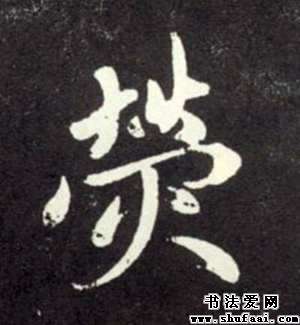 熒
书法爱网
www.shufaai.com